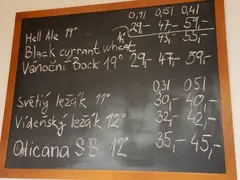 0,2l 0,3l 0,4l
Hell Ale 11° 29,- 47,- 59,-
Black currant wheat 43,- 55,-
Vánoční Bock 19° 29,- 47,- 59,-
0,3l 0,5l
Světlý ležák 11° 30,- 40,-
Vídeňský ležák 12° 32,- 42,-
Qlicana S.B. 12° 35,- 45,-